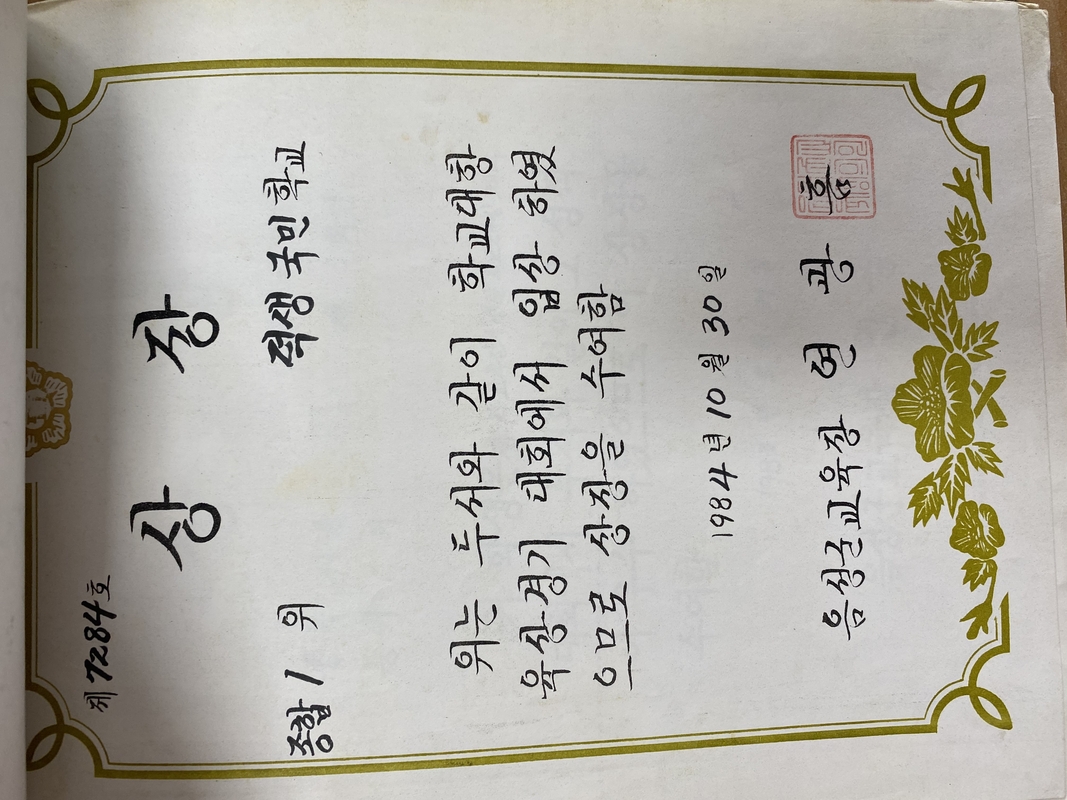 제 7284호
상 장
종합 1 위
적생 국민 학교
위는 두서와 같이 학교대항
육상경기 대회에서 입상 하였
으므로 상장을 수여함
1984년 10월 30일
음성군교육장 연 광 흠